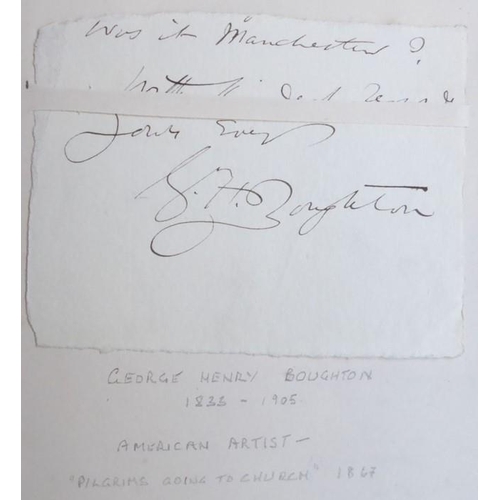 Was it Manchester?
With
Yours Ever
G. H. Boughton
GEORGE HENRY BOUGHTON
1833 - 1905.
AMERICAN ARTIST —
"PILGRIMS GOING TO CHURCH" 1867